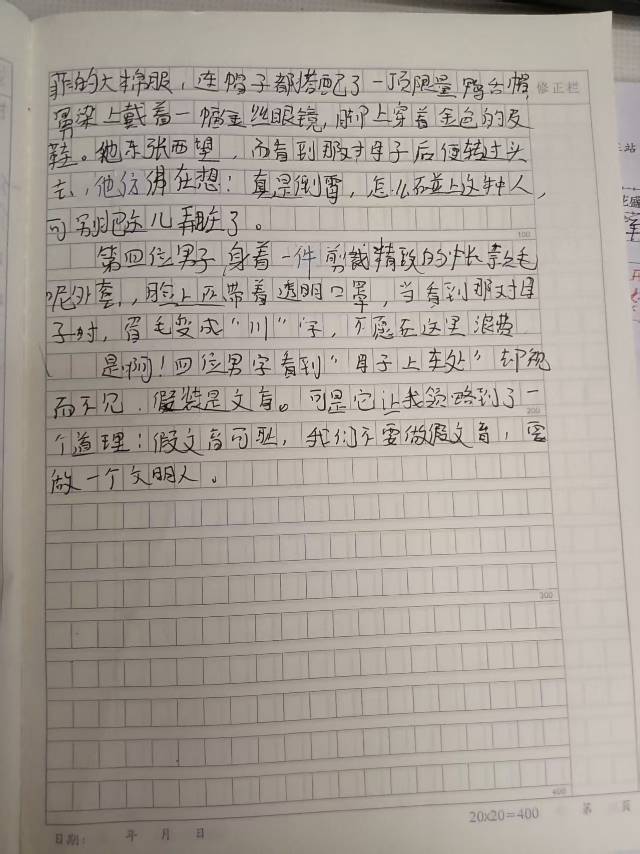 菲的大棉服，连帽子都搭配了一顶限量鸭舌帽
修正栏
鼻梁上戴着一幅金丝眼镜，脚上穿着金色的皮
鞋。他东张西望，而看到那对母子后便转过头
去，他彷佛在想：真是倒霉，怎么碰上这种人，
可别把女儿弄脏了。
100
第四位男子，身着一件剪裁精致的长款毛
呢外套，脸上还带着透明口罩，当看到那对母
子时，眉毛变成“川”字，不愿在这里浪费
是啊！四位男子看到“母子上车处”却视
而不见，假装是文盲。可是它让我领略到了一
200
个道理：假文盲可耻，我们不要做假文盲，要
做一个文明人。
300
400
20x20=400
第 页
日期： 年 月 日
站